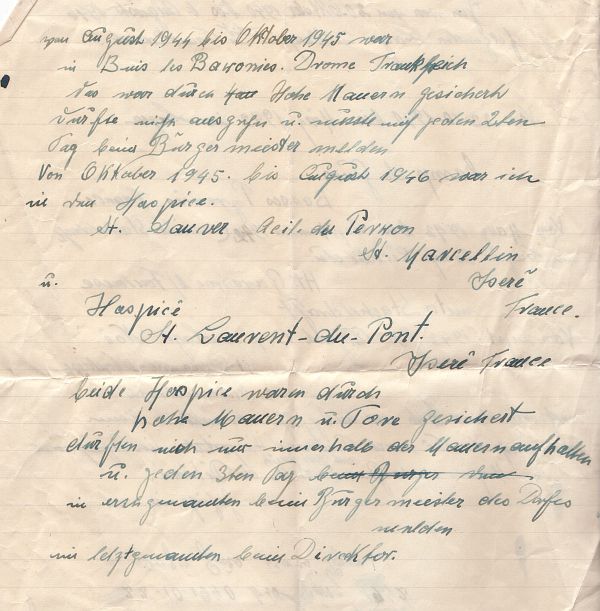 von August 1944 bis Oktober 1945 war
in Buis les Baronies. Drome Frankreich
das war durch Hohe Mauern gesichert
durfte nicht ausgehn u. musste mich jeden 2ten
Tag beim Bürgermeister melden
Von Oktober 1945. bis August 1946 war ich
in den Hospice.
St. Sauver Acil. du Perron
St. Marcellin
u. Iserê
Hospicê France.
St. Laurent-du-Pont.
Iserê France
beide Hospice waren durch
hohe Mauern u. Tore gesichert
dürften nur innerhalb der Mauern aufhalten
u. jeden 3ten Tag
in erstgenanten beim Bürgermeister des Dorfes
melden
in letztgenanten beim Direktor.